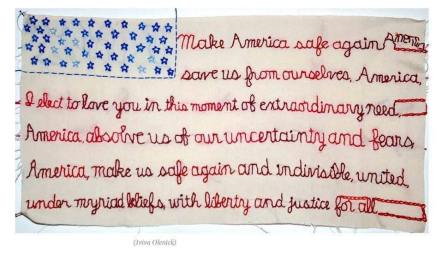 Make America safe again America
save us from ourselves, America,
I elect to love you in this moment of extraordinary need,
America, absolve us of our uncertainty and fears
America, make us safe again and indivisible, united
under myriad beliefs, with liberty and justice for all
(Iviva Olenick)